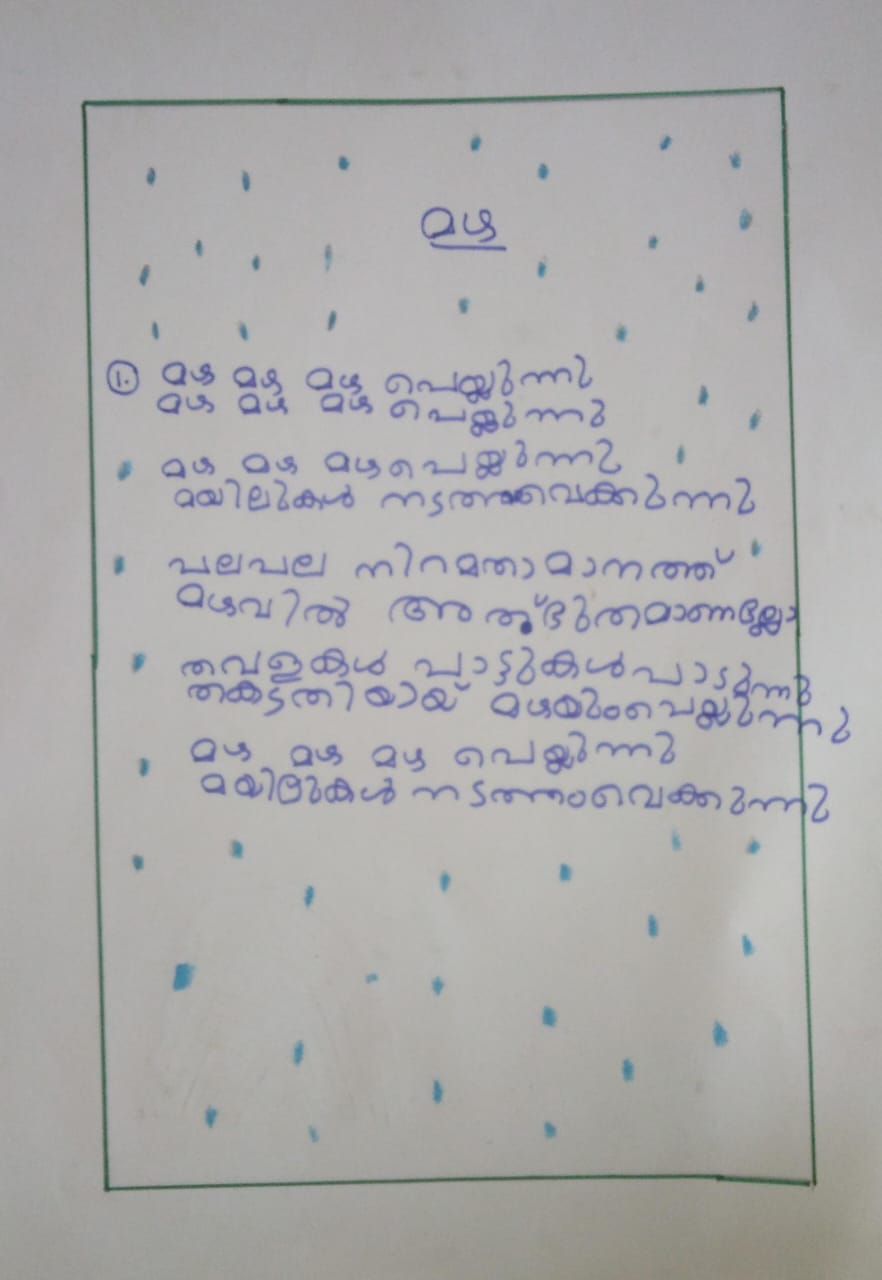 മഴ
1. മഴ മഴ മഴ പെയ്യുന്നു
മഴ മഴ മഴ പെയ്യുന്നു
മഴ മഴ മഴപെയ്യുന്നു
മയിലുകൾ നടത്തംവെക്കുന്നു
പലപല നിറമതാമാനത്ത്
മഴവിൽ അത്ഭുതമാണല്ലോ
തവളകൾ പാട്ടുകൾപാടുന്നു
തകട്തിയായ് മഴയുംപെയ്യുന്നു
മഴ മഴ മഴ പെയ്യുന്നു
മയിലുകൾ നടത്തംവെക്കുന്നു